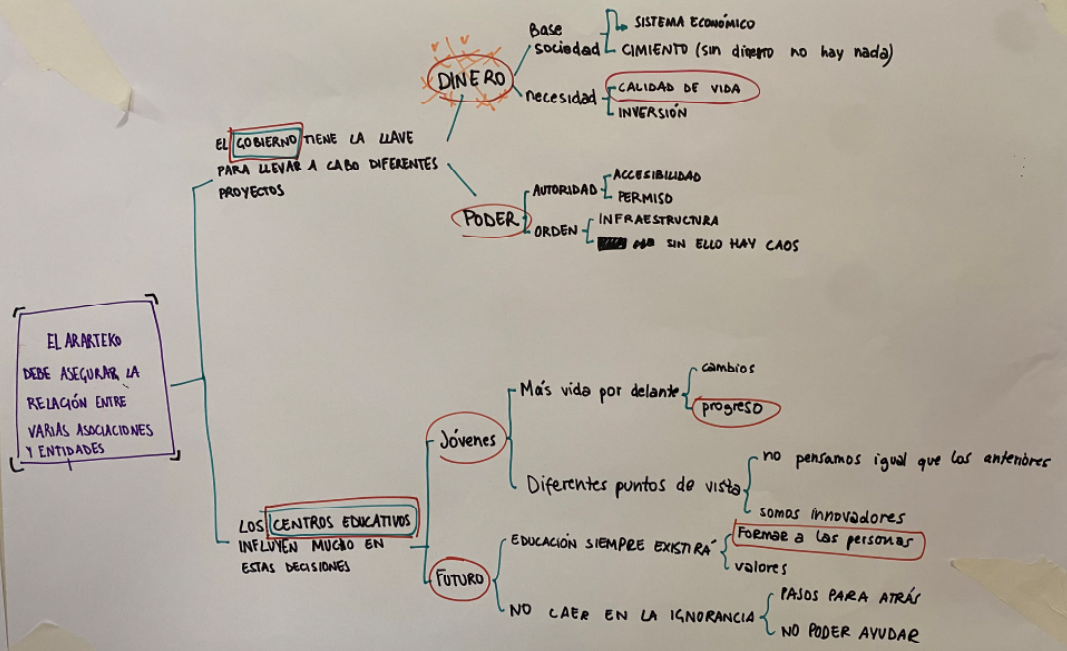 EL ARARTEKO
DEBE ASEGURAR LA
RELACIÓN ENTRE
VARIAS ASOCIACIONES
Y ENTIDADES
EL GOBIERNO TIENE LA LLAVE
PARA LLEVAR A CABO DIFERENTES
PROYECTOS
DINERO
Base
sociedad
SISTEMA ECONÓMICO
CIMIENTO (sin dinero no hay nada)
necesidad
CALIDAD DE VIDA
INVERSIÓN
PODER
AUTORIDAD
ACCESIBILIDAD
PERMISO
ORDEN
INFRAESTRUCTURA
SIN ELLO HAY CAOS
LOS CENTROS EDUCATIVOS
INFLUYEN MUCHO EN
ESTAS DECISIONES
Jóvenes
Más vida por delante
cambios
progreso
Diferentes puntos de vista
no pensamos igual que los anteriores
somos innovadores
FUTURO
EDUCACIÓN SIEMPRE EXISTIRÁ
Formar a las personas
valores
NO CAER EN LA IGNORANCIA
PASOS PARA ATRÁS
NO PODER AYUDAR